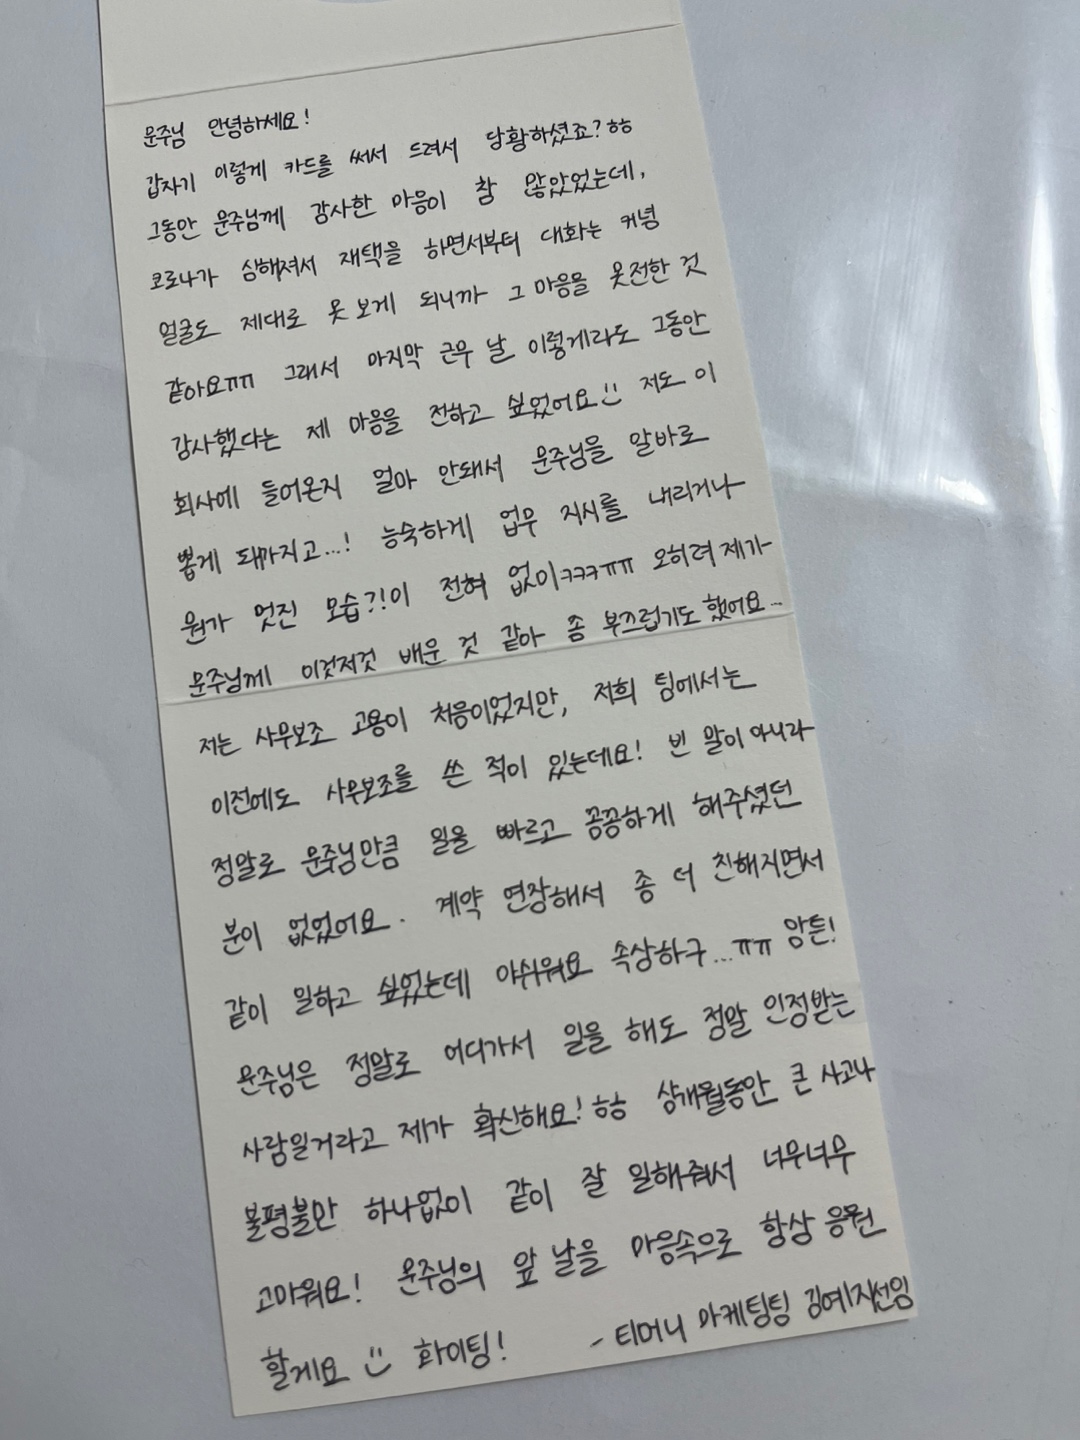 문주님 안녕하세요!
갑자기 이렇게 카드를 써서 드려서 당황하셨죠?ㅎㅎ
그동안 문주님께 감사한 마음이 참 많았었는데,
코로나가 심해져서 재택을 하면서부터 대화는 커녕
얼굴도 제대로 못 보게 되니까 그 마음을 못전한 것
같아요ㅠㅠ 그래서 마지막 근무 날 이렇게라도 그동안
감사했다는 제 마음을 전하고 싶었어요 저도 이
회사에 들어온지 얼마 안돼서 문주님을 알바로
뽑게 돼가지고...! 능숙하게 업무 지시를 내리거나
뭔가 멋진 모습?!이 전혀 없이ㅋㅋㅋㅠㅠ 오히려 제가
문주님께 이것저것 배운 것 같아 좀 부끄럽기도 했어요...
저는 사무보조 고용이 처음이었지만, 저희 팀에서는
이전에도 사무보조를 쓴 적이 있는데요! 빈 말이 아니라
정말로 문주님만큼 일을 빠르고 꼼꼼하게 해주셨던
분이 없었어요. 계약 연장해서 좀 더 친해지면서
같이 일하고 싶었는데 아쉬워요 속상하구...ㅠㅠ 암튼!
문주님은 정말로 어디가서 일을 해도 정말 인정받는
사람일거라고 제가 확신해요!ㅎㅎ 삼개월동안 큰 사고나
불평불만 하나없이 같이 잘 일해줘서 너무너무
고마워요! 문주님의 앞 날을 마음속으로 항상 응원
할게요 화이팅! - 티머니 마케팅팀 김예지선임